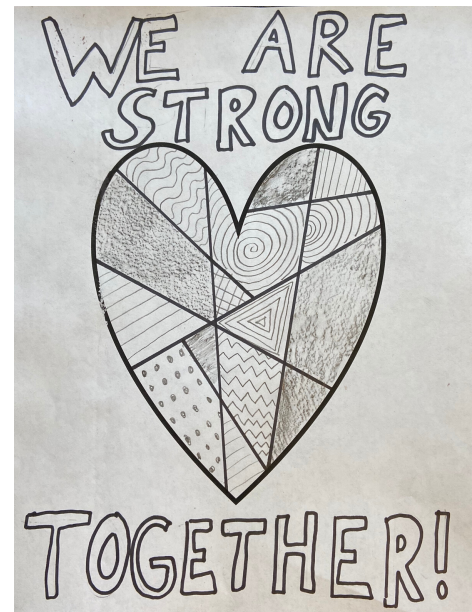 WE ARE
STRONG
TOGETHER!